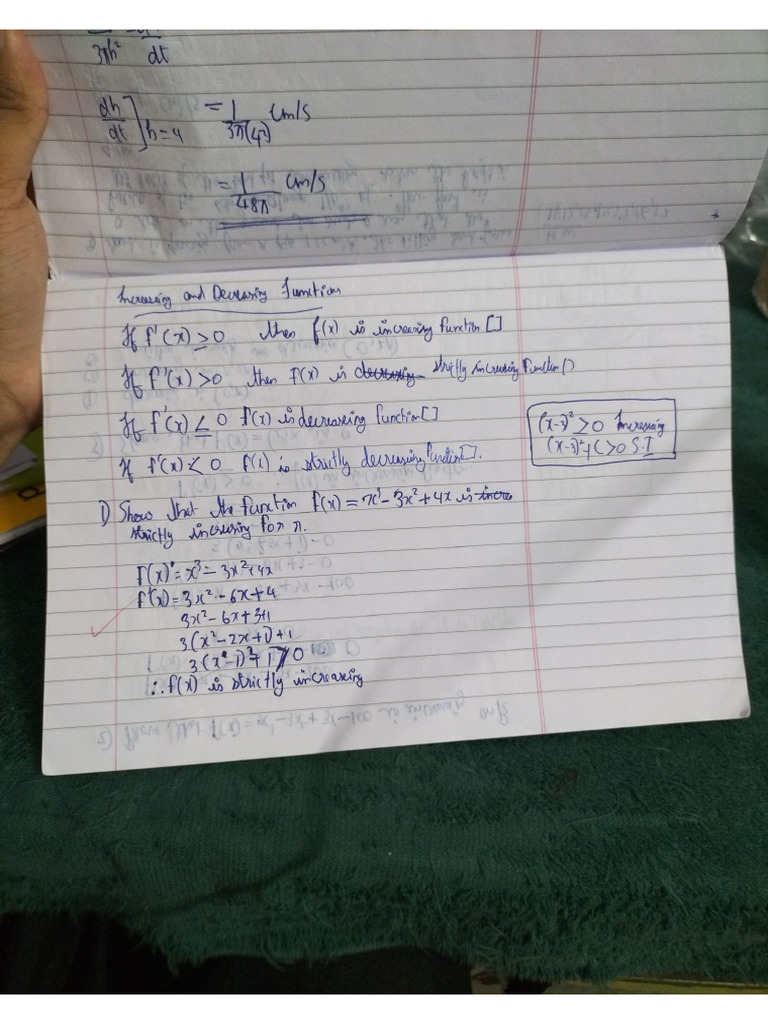 3πh² dt
dh/dt]h=4 = 1/3π(4²) cm/s
= 1/48π cm/s
Increasing and Decreasing Function
If f'(x) ≥ 0 then f(x) is increasing function []
If f'(x) > 0 then f(x) is decreasing strictly increasing function ()
If f'(x) ≤ 0 f(x) is decreaseing function []
If f'(x) < 0 f(x) is strictly decreasing function [].
(x-3)² > 0 Increasing
(x-3)²+C > 0 S.I
1) Show that the function f(x) = x³ - 3x² + 4x is incre
strictly increasing for x.
f(x) = x³ - 3x² + 4x
f'(x) = 3x² - 6x + 4
3x² - 6x + 3+1
3(x² - 2x + 1) + 1
3(x - 1)² + 1 > 0
∴ f(x) is strictly increasing